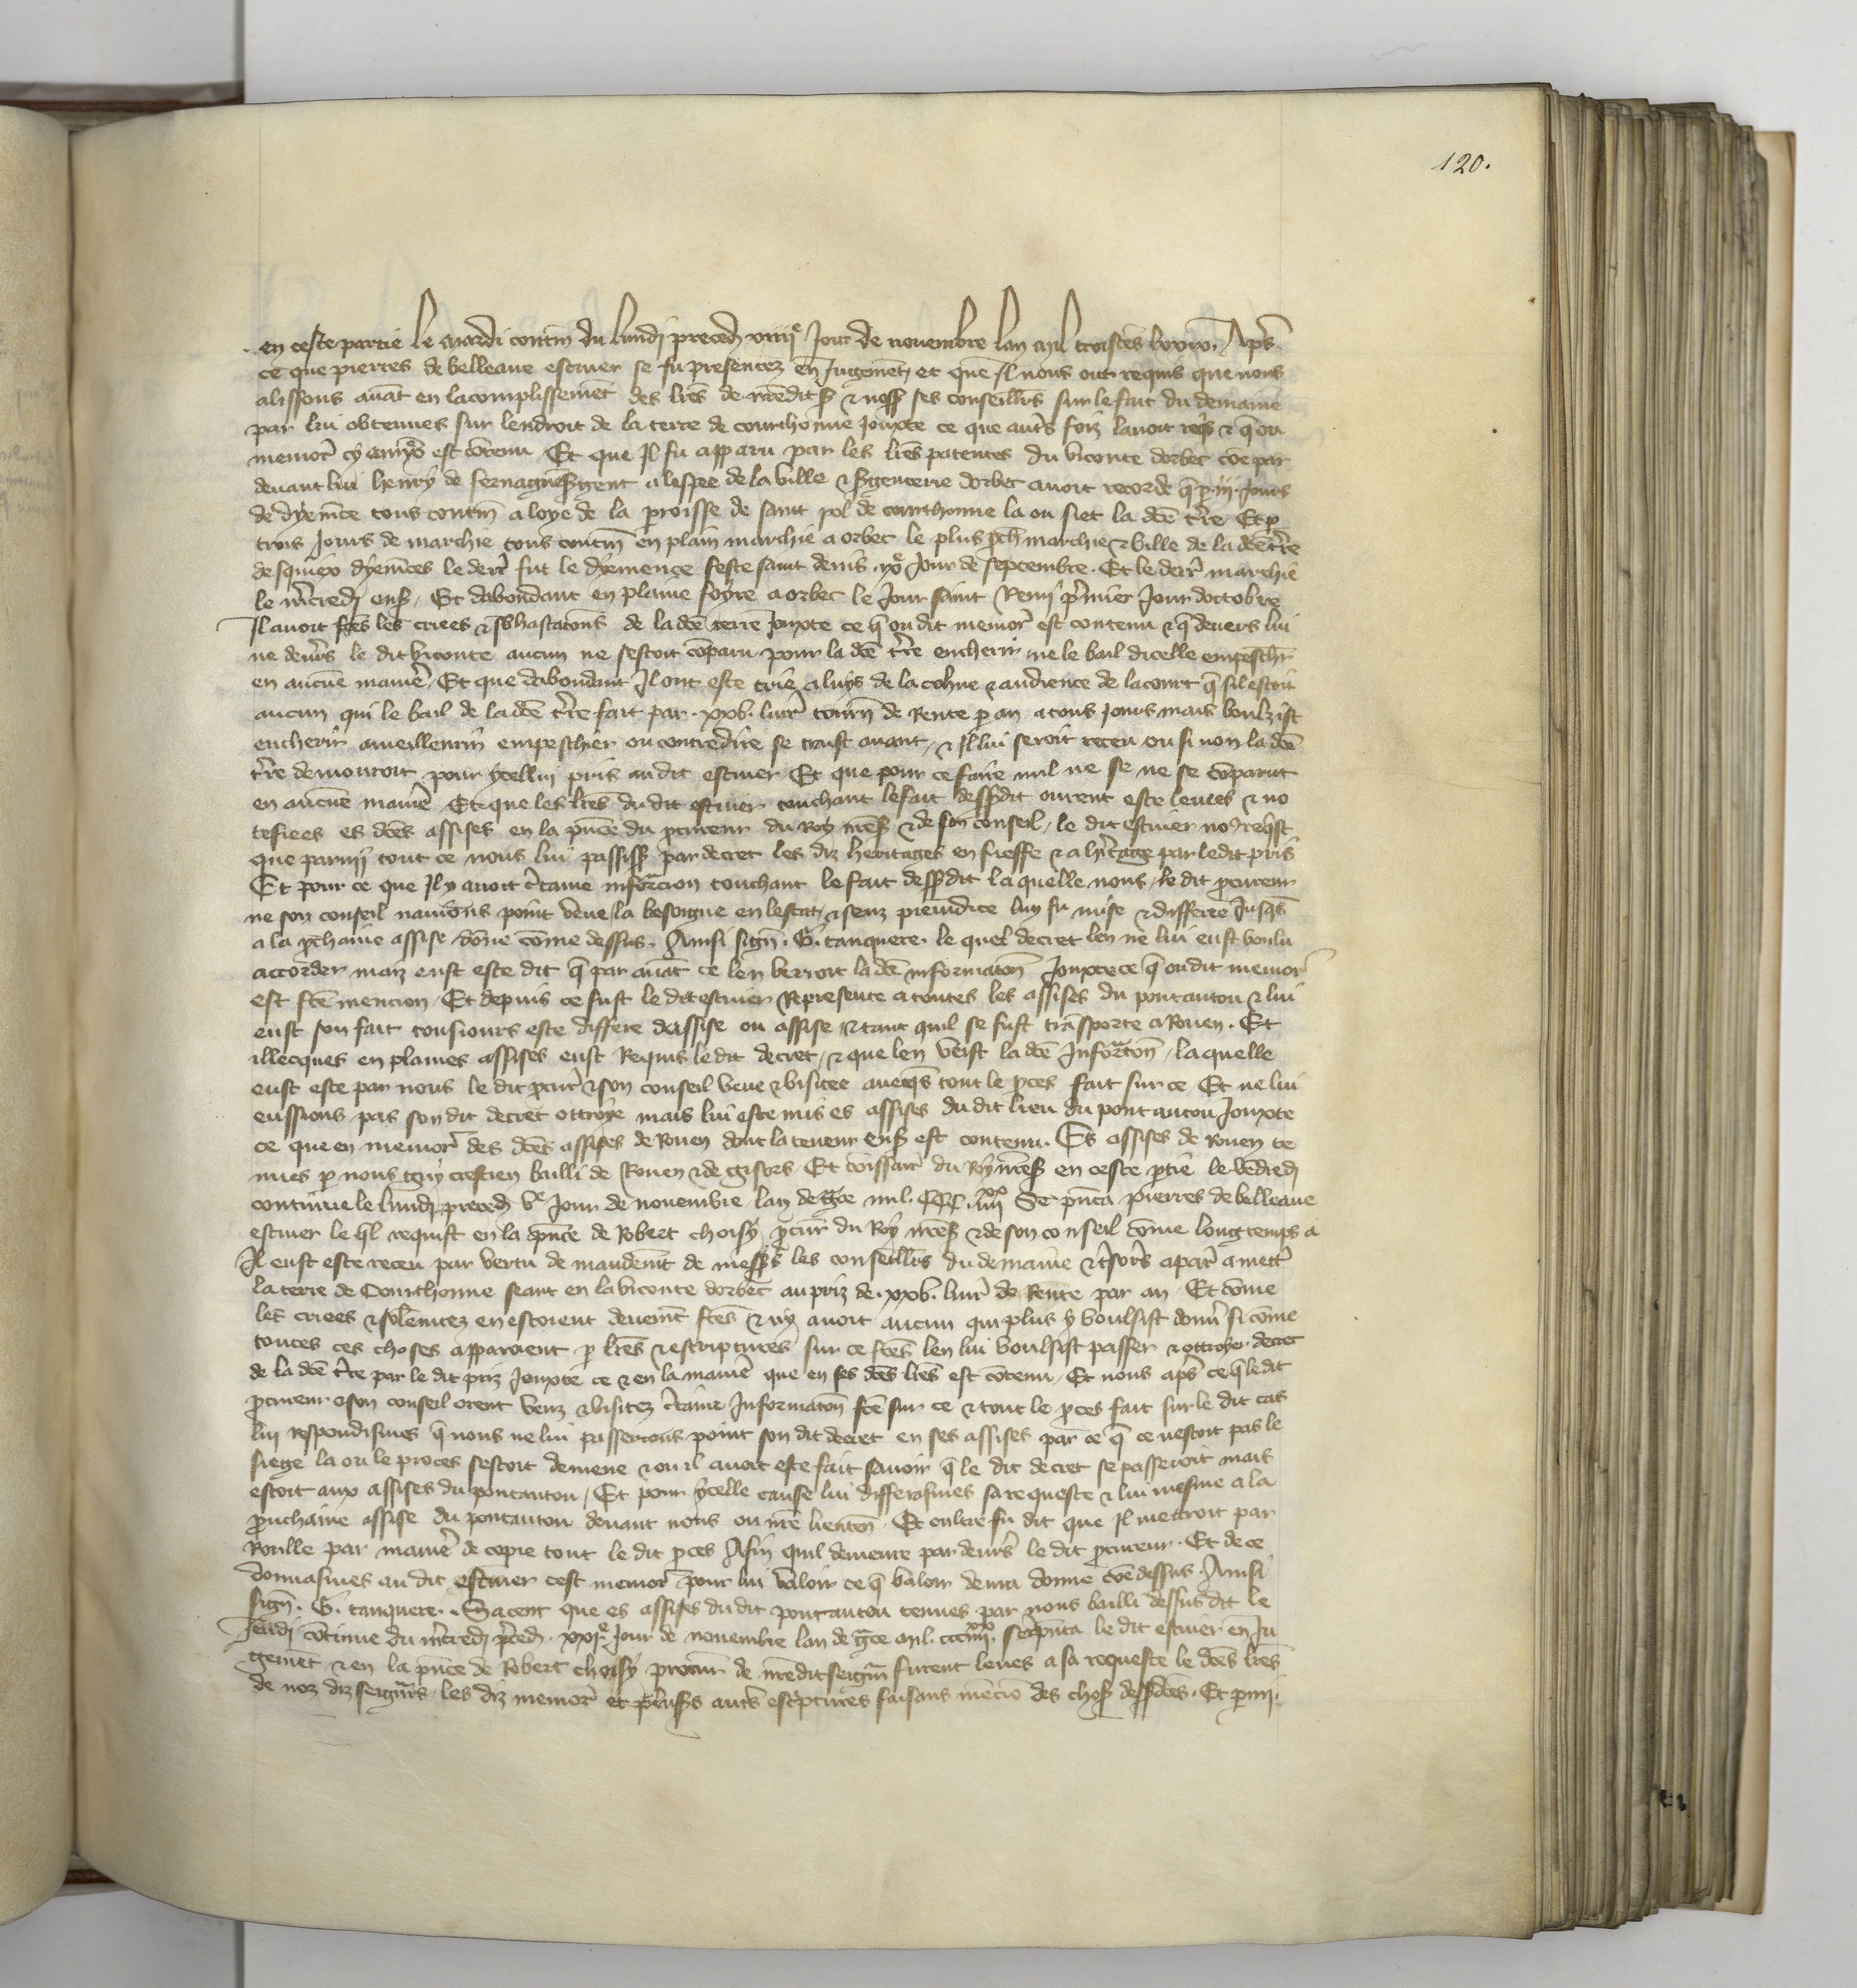 120.
en ceste partie le mardi contin du lundi preced xiiije Jour de novembre lan mil troiscens lxxix. Aps
ce que pierres de belleaue escuier se fu presentez en Jugement, et que Il nous out requis que nous
alissons avat en lacomplissemet des lres de nredit s & noss ses conseillrs sur le fait du demaine
par lui obtenues sur lendroit de la terre de courthonne Jouxte ce que autrs foiz lavoit reqs & q ou
memor cy est cotenu Et que Il fu apparu par les lres patentes du viconte dorbec coe par
devant lui henry de sernague sgent a lespee de la ville & sgenterie dorbec avoit recorde q p iij. Jours
de dyemce tous contin a loye de la proisse de saint pol de courthonne la ou siet la dce tre Et p
trois Jours de marchie tous contin en plain marchie a orbec le plus pch marchie & ville de la dce tre
desquiex dyemces le derr fut le dyemence feste saint denis. ixe Jour de septembre. Et le derr marchie
le mcredi ens, Et dabondant en plaine foyre a orbec le Jour saint Remy pmier Jour doctobre
Il avoit fces les criees & sbhastacons de la dce terre Jouxte ce q ou dit memor est contenu & q devers lui
ne devrs le dit viconte aucun ne sestoit comparu pour la dce tre encherir ne le bail dicelle empeschr
en aucune manie, Et que dabondant Il out este crie a luys de la cohue & audience de la court q sil estoit
aucun qui le bail de la dce tre fait par. xxv. livr tourn de Rente p an a tous Jours mais voulzist
encherir amellleurir empeschier ou contredire se traist avant, & Il lui seroit receu ou si non la dce
tre demouroit pour ycellui pris au dit escuier Et que pour ce faire nul ne se ne se comparut
en aucune manie Et que les lres du dit escuier touchant le fait dessdit ourent este leues & no
tefiees es dces assises en la pnce du pcureur du Roy nres & de son conseil, le dit escuier no reqst
que parmi tout ce nous lui passiss par decret les diz heritages en fieffe & a hitage par ledit pris
Et pour ce que Il y avoit ctaine informcion touchant le fait dessdit laquelle nous, le dit pcureur
ne son conseil navions point veue, la besoigne en lestat & senz preiudice luy fu mise & differee Jusqs
a la pchaine assise done come dessus. Ainsi sign. G. tanquere. le quel decret len ne lui eust voulu
accorder maiz eust este dit q par avat ce len verroit la dce informaton Jouxte ce q ou dit memor
est fce mencion, Et depuis ce fust le dit escuier Represente a toutes les assises du pontautou & lui
eust son fait tousiours este differe dassise en assise & tant quil se fust transporte a Rouen. Et
illecques en plaines assises eust Requis le dit decret, & que len veist la dce Informaton, laquelle
eust este par nous le dit pcur & son conseil veue & visitee avecqs tout le pces fait sur ce Et ne lui
eussions pas son dit decret ottroye mais lui este mis es assises du dit lieu du pont autou Jouxte
ce que en memor des dces assises de Rouen dont la teneur ens est contenu. Es assises de Rouen te
nues p nous guy crestien bailli de Rouen & de gisors Et coissair du Roy nres en ceste ptie le vedredi
continue le lundi preced ve Jour de novembre lan de gce mil. CCC. iiijxx Se pnta pierres de belleaue
escuier le ql requist en la pnce de Robert choisy pcur du Roy nres & de son conseil come longtemps a
Il eust este receu par vertu de mandemt de messrs les conseillrs du demaine & tsorrs a par a mettr
la terre de Courthonne seant en la viconte dorbec au priz de. xxv. livr de Rente par an Et come
les criees & solemitez en estoient deuemt fces & ny avoit aucun qui plus y voulsist donr si come
toutes ces choses apparoient p lres & escriptures sur ce fces len lui voulsist passer & ottroyer decret
de la dce tre par le dit priz Jouxte ce & en la manie que en ses dces lres est cotenu, Et nous aps ce q ledit
pcureur & son conseil orent veuz & visitez ctaine Informaton fce sur ce & tout le pces fait sur le dit cas
lui respondismes q nous ne lui passerions point son dit decret en ses assises par ce q ce nestoit pas le
siege la ou le proces sestoit demene & ou il avoit este fait savoir q le dit decret se passeroit mais
estoit aux assises du pontautou, Et pour ycelle cause lui differasmes sa requeste & lui mesme a la
prouchaine assise du pontautou devant nous ou nre lieuten. Et oultre fu dit que Il mettroit par
Roulle par manie de copie tout le dit pces Afin quil demeure par devrs le dit pcureur. Et de ce
donnasmes au dit escuier cest memor pour lui valoir ce q valoir devra donne coe dessus. Ainsi
sign. G. tanquere. Sacent que es assises du dit pontautou tenues par nous bailli dessus dit le
Jeudi cotinue du mcredi pced. xxje Jour de novembre lan de gce mil. ccciiijxx. se pnta le dit escuier en Ju
gemet & en la pnce de Robert choisy procur de nredit seignr furent leues a sa requeste le dces lres
de noz diz seignrs, les diz memor et pluss autrs escptures faisans mecio des chos dessdces. Et pmi.